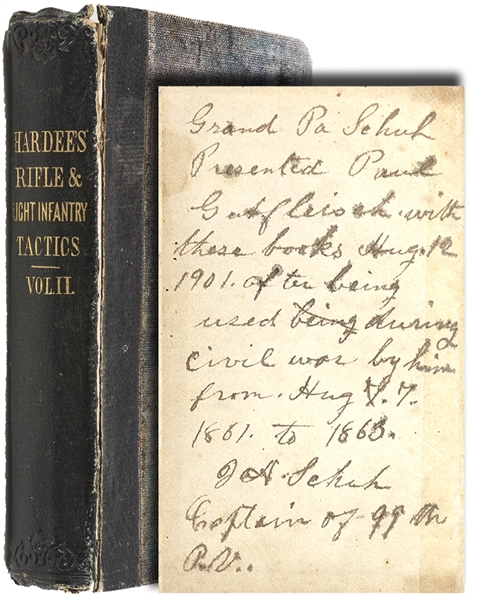 HARDEE'S
RIFLE &
LIGHT INFANTRY
TACTICS
VOL. II.
Grand Pa Schuh
Presented Paul
Gutfleisch with
these books Aug. 12
1901. after being
used being during
civil war by him
from. Aug 7.
1861. to 1863.
J A. Schuh
Captain of 99 th
P.V..